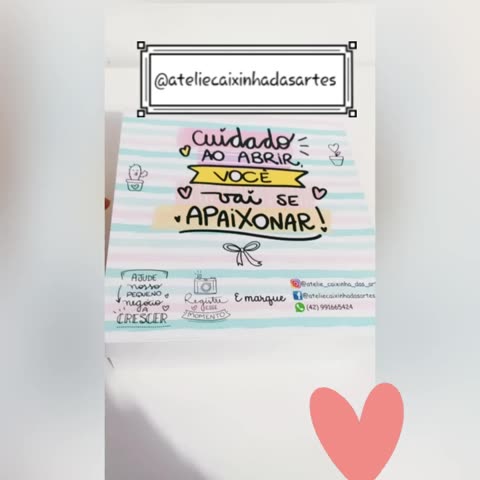 @ateliecaixinhadasartes
Cuidado
AO ABRIR,
VOCÊ
vai SE
APAIXONAR!
AJUDE
nosso
PEQUENO
negócio
A
CRESCER
Registre
esse
MOMENTO
E marque
@atelie_caixinha_das_art
@ateliecaixinhadasartes
(42) 991665424